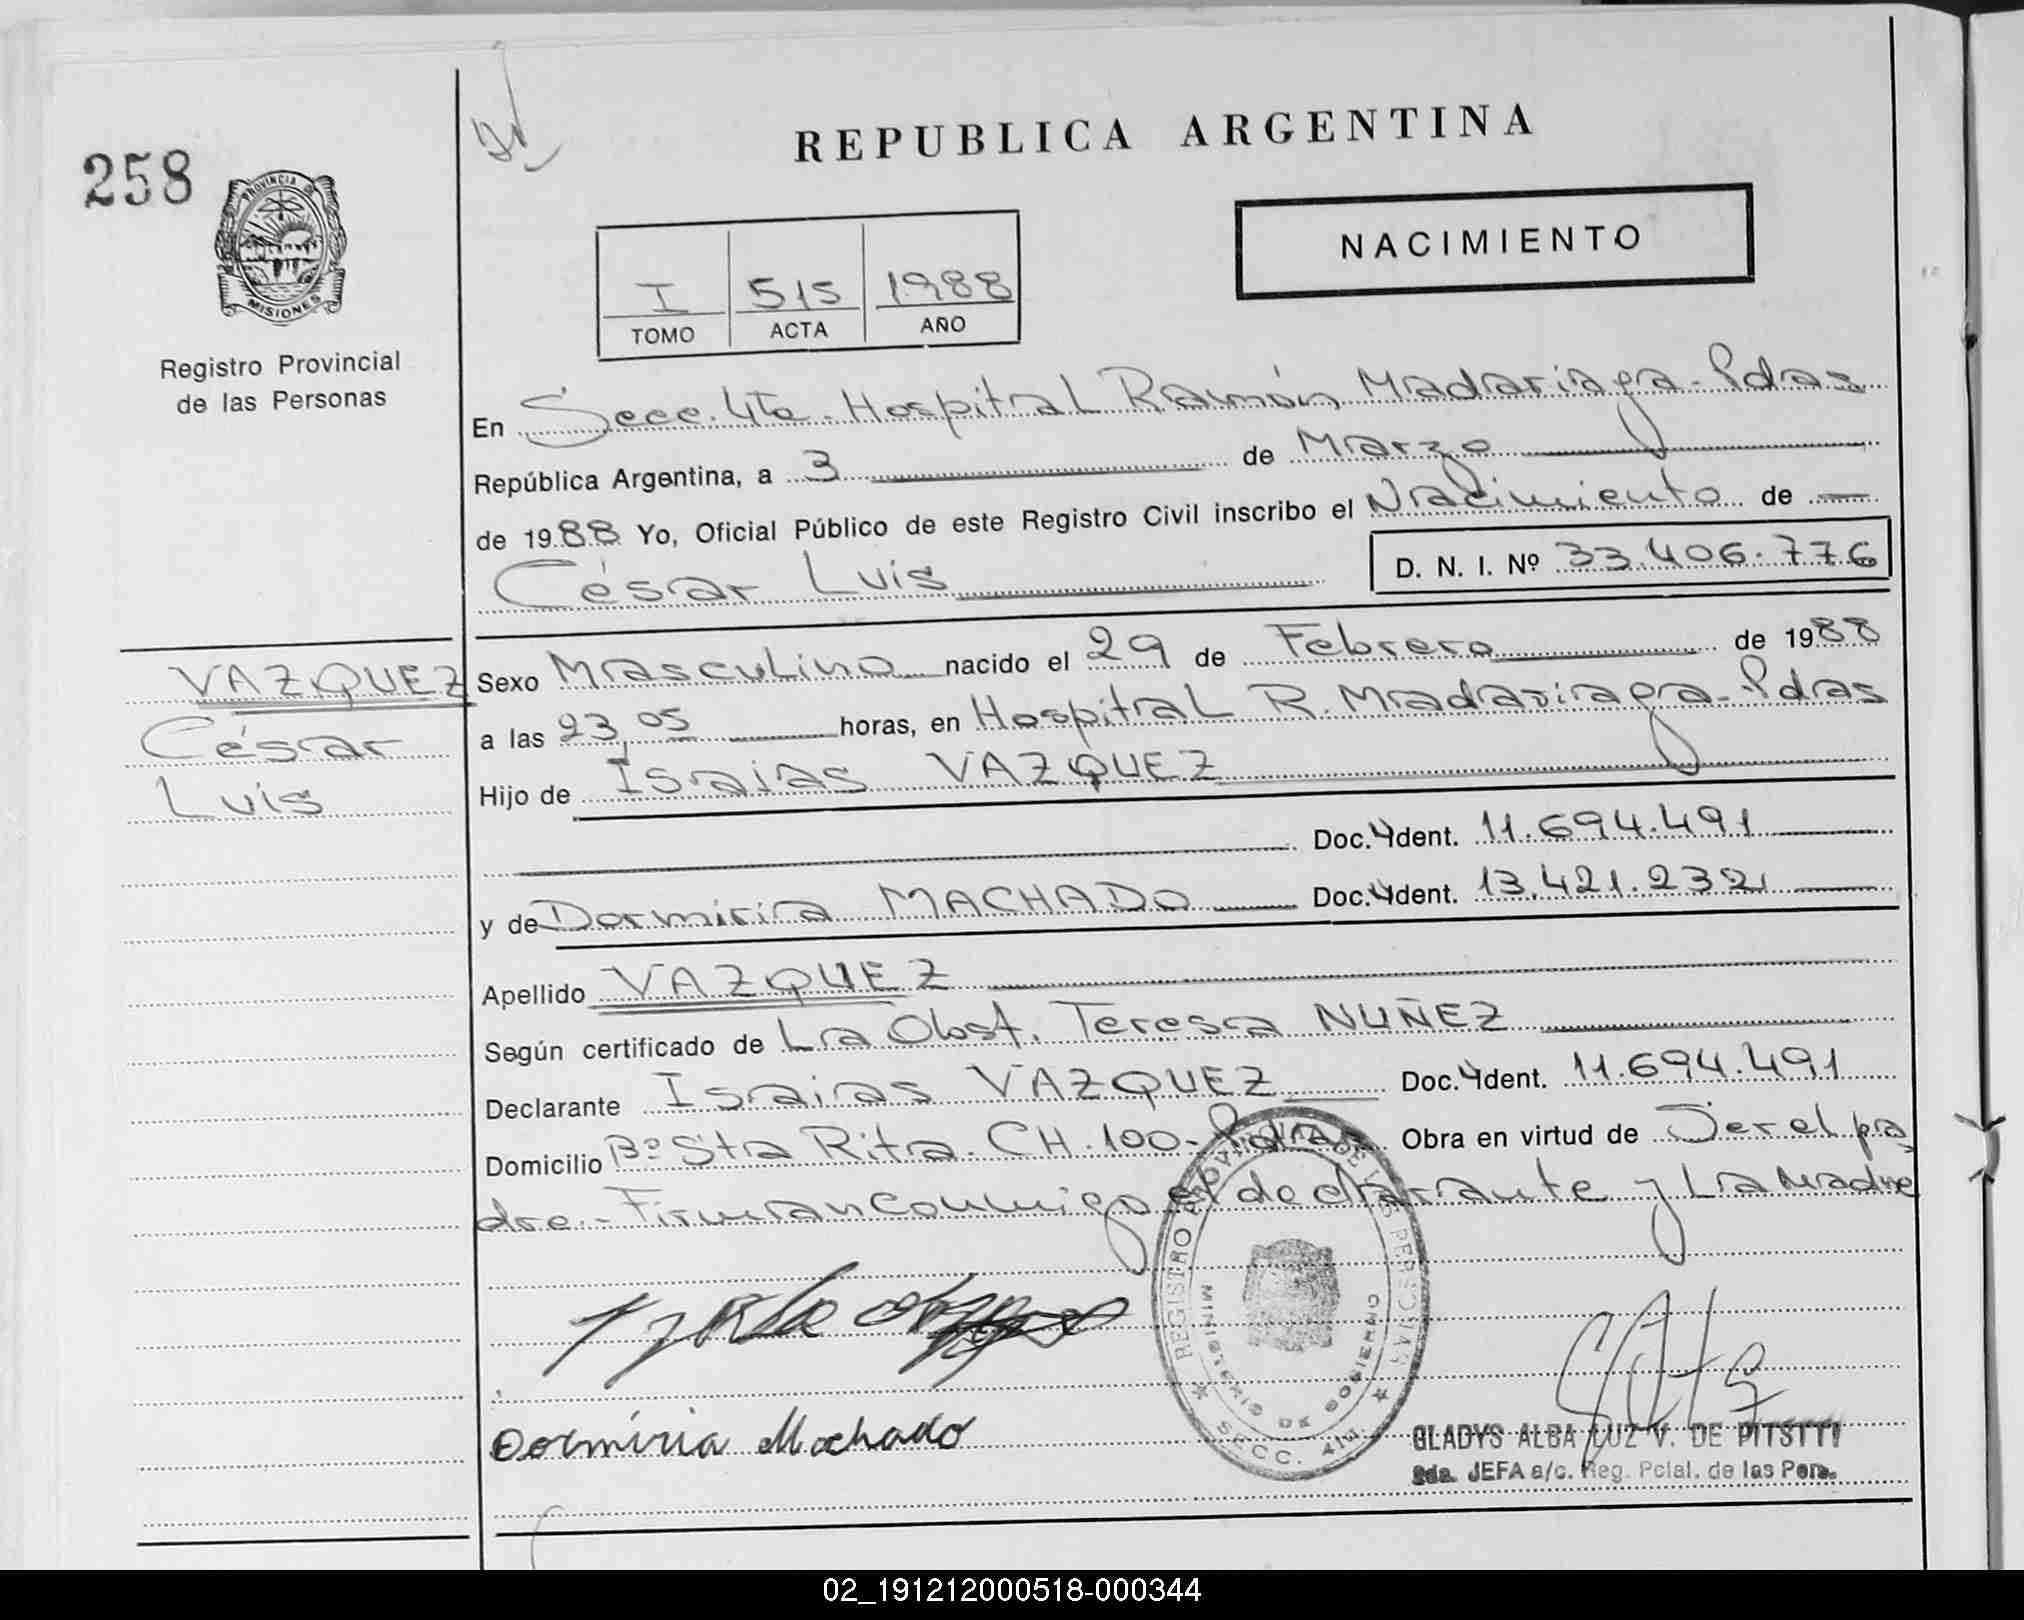 258
PROVINCIA DE
MISIONES
Registro Provincial
de las Personas
REPUBLICA ARGENTINA
NACIMIENTO
I 515 1988
TOMO ACTA AÑO
En Secc. 4ta. Hospital Ramón Madariaga - Pdas
República Argentina, a 3 de Marzo
de 1988 Yo, Oficial Público de este Registro Civil inscribo el Nacimiento de
César Luis D. N. I. Nº 33.406.776
VAZQUEZ
César
Luis
Sexo Masculino nacido el 29 de Febrero de 1988
a las 23,05 horas, en Hospital R. Madariaga - Pdas
Hijo de Isaias VAZQUEZ
Doc. Ident. 11.694.491
y de Dormiria MACHADO Doc. Ident. 13.421.232
Apellido VAZQUEZ
Según certificado de La Obst. Teresa NUÑEZ
Declarante Isaias VAZQUEZ Doc. Ident. 11.694.491
Domicilio Bº Sta Rita. CH. 100 - Pdas Obra en virtud de Ser el pa
dre.- Firman conmigo el declarante y La Madre
REGISTRO PROVINCIAL DE LAS PERSONAS
MINISTERIO DE GOBIERNO
SECC. 4ta.
Dormiria Machado
GLADYS ALBA LUZ V. DE PITSTTI
2da. JEFA a/c. Reg. Pcial. de las Pers.
02_191212000518-000344